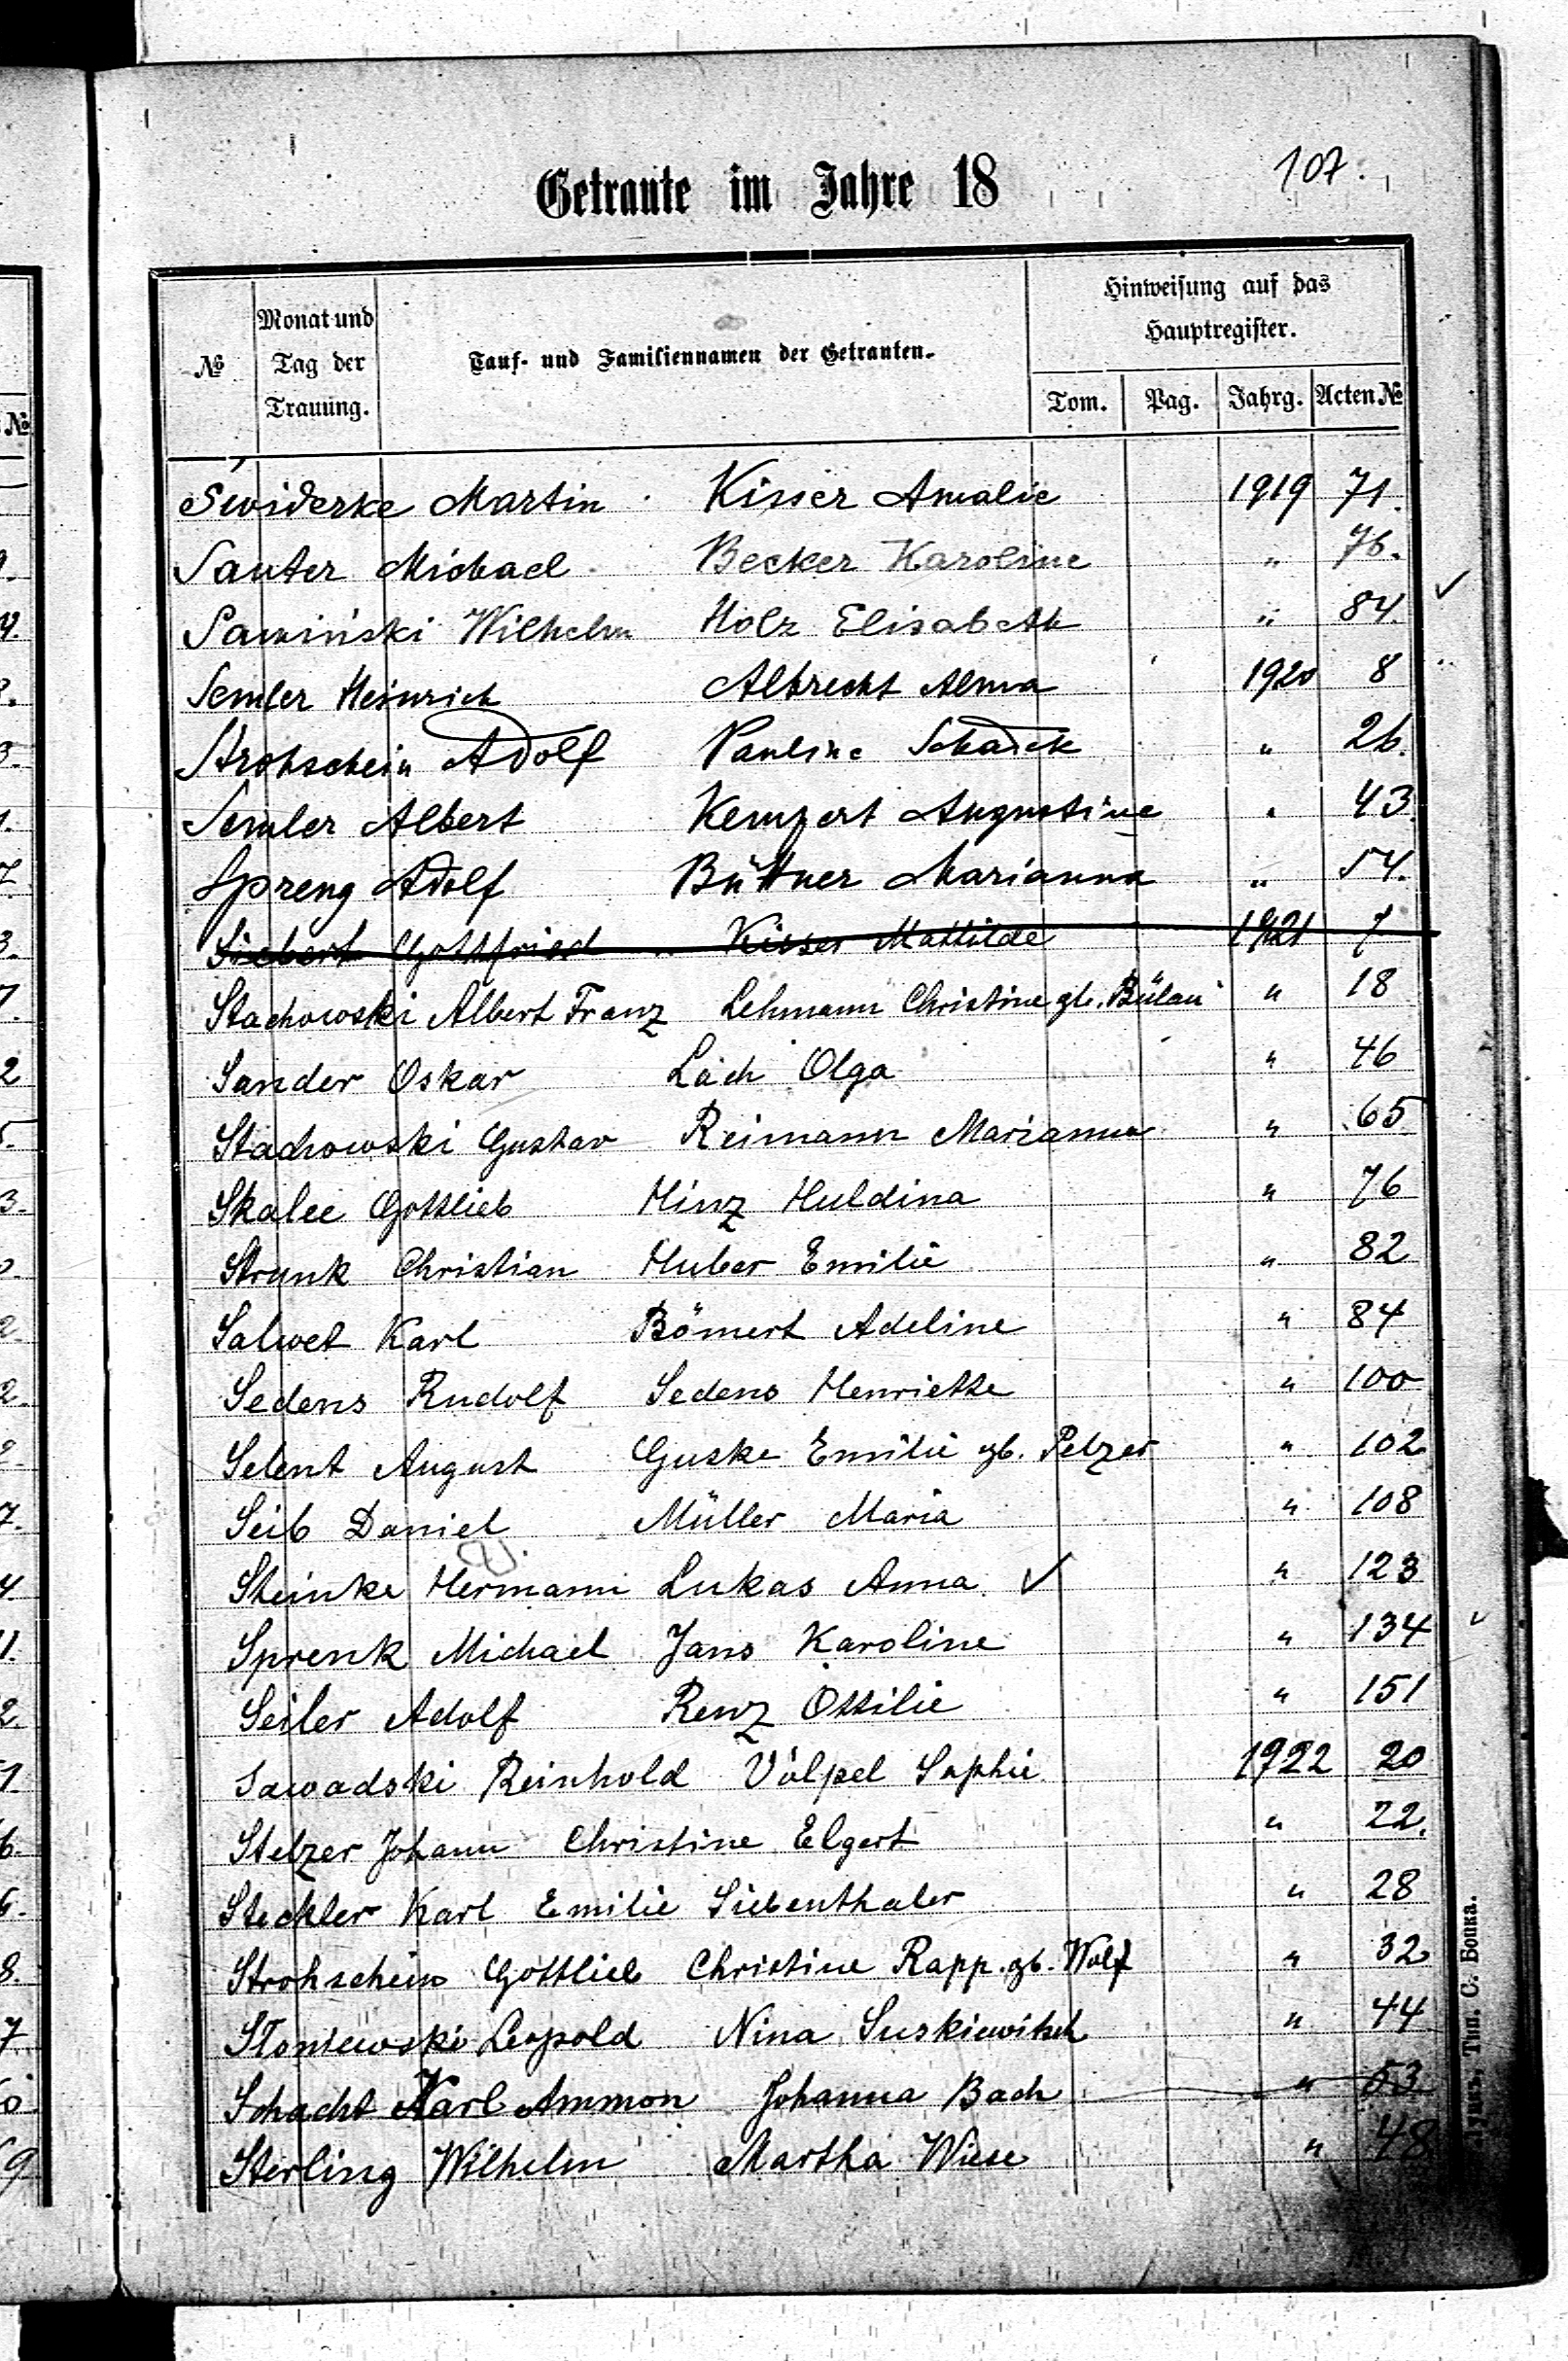 107.
Getraute im Jahre 18
№ Monat und Tag der Trauung. Tauf- und Familiennamen der Getrauten. Hinweisung auf das Hauptregister.
Tom. Pag. Jahrg. Acten №
Swiderke Martin Kisser Amalie 1919 71.
Sauter Michael Becker Karoline " 76.
Sawiński Wilhelm Holz Elisabeth " 84.
Semler Heinrich Albrecht Alma 1920 8
Strohschein Adolf Pauline " 26.
Semler Albert Kempert Augustine " 43
Spreng Adolf Büttner Marianna " 54.
Siebert Gottfried Kisser Mathilde 1921 7
Stachowski Albert Franz Lehmann Christine gb. Bülau " 18
Sander Oskar Lach Olga " 46
Stachowski Gustav Reimann Marianna " 65
Skalee Gottlieb Hinz Huldina " 76
Strunk Christian Huber Emilie " 82
Salwet Karl Bömert Adeline " 84
Sedens Rudolf Sedens Henriette " 100
Selent August Guske Emilie gb. Pelzer " 102
Seib Daniel Müller Maria " 108
Steinke Hermann Lukas Anna ✓ " 123
Sprenk Michael Jans Karoline " 134
Seiler Adolf Renz Ottilie " 151
Sawadski Reinhold Völpel Sophie 1922 20
Stelzer Johann Christine Elgert " 22.
Steckler Karl Emilie Siebenthaler " 28
Strohschein Gottlieb Christine Rapp. gb. Wolf " 32
Słoniewski Leopold Nina Suskiewitsch " 44
Schacht Karl Ammon Johanna Bach " 53
Sterling Wilhelm Martha Wiese " 48
Тип. С. Бонка.